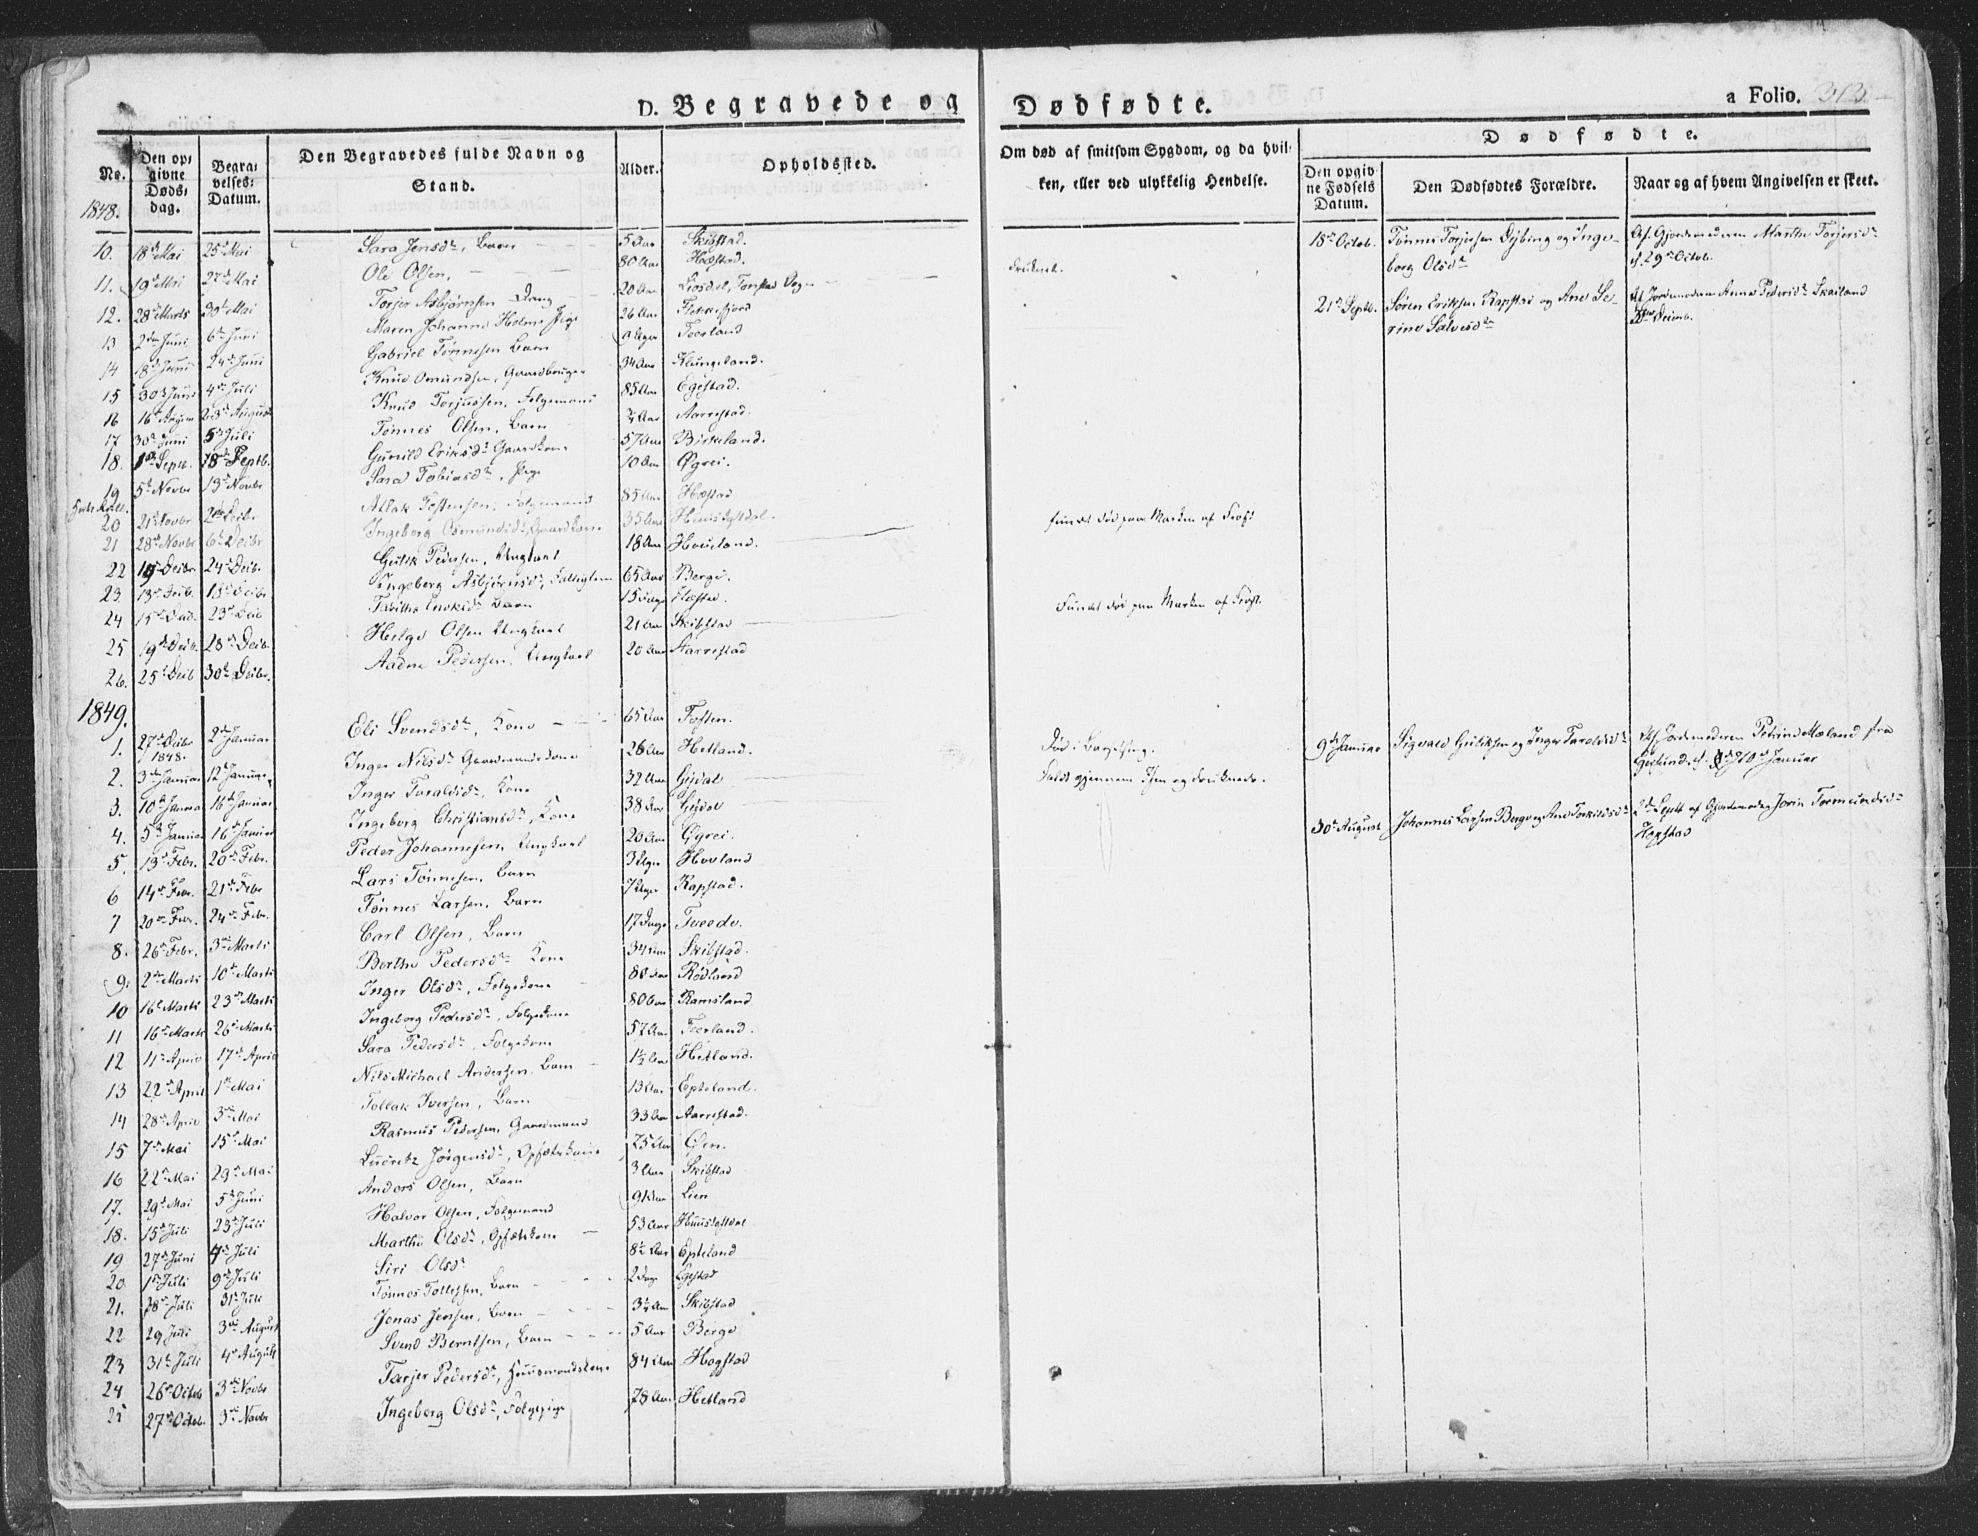 D. Begravede og Dødfødte.
a Folio. 313
No.
Den opgivne Dødsdag.
Begravelses Datum.
Den Begravedes fulde Navn og Stand.
Alder.
Opholdssted.
Om død af smitsom Sygdom, og da hvilken, eller ved ulykkelig Hendelse.
Dødfødte.
Den opgivne Fødsels Datum.
Den Dødfødtes Forældre.
Naar og af hvem Angivelsen er skeet.
1848.
10. 18de Mai 25de Mai Sara Jensdtr, Barn 5 Aar Skibstad.
11. 19de Mai 27de Mai Ole Olsen, 80 Aar Hæstad.
12. 28de Marts 30te Mai Torjer Asbjørnsen Dreng 20 Aar druknet.
13 2den Juni 6te Juni Maren Johanne Holme Pige 26 Aar Flekkefjord
14 18de Juni 24de Juni Gabriel Tønnesen Barn Uger Toorland
15 30te Juni 4de Juli Knud Omundsen, Gaardbruger 34 Aar Klungeland.
16 16de August 23de August Knud Torjussen, Folgemand 85 Aar Egestad.
17 30te Juni 5te Juli Tønnes Olsen, Barn Aar Aarrestad.
18. 1ste Septb. 18de Septb. Gunild Eriksdtr Gaardkone 57 Aar Birkeland.
19 5te Novbr 13de Novbr Sara Tobiasdtr, Pige 10 Aar Øgrei.
20 21de Novbr 2den Decbr Folgemand 85 Aar Hæstad
21 28de Novbr 6te Decbr Ingeborg Osmundsdtr, Gaardkone 35 Aar
22 19de Decbr 24de Decbr Gulik Pedersen, Ungkarl 18 Aar Hovland. fundet død paa Marken af Frost
23. 13de Decb. 18de Decbr Ingeborg Asbjørnsdtr, 65 Aar Berge.
24 15de Decb. 23de Decb Barn 15 Dage Hæstad.
25 19de Decb. 28de Decb. Helge Olsen Ungkarl 21 Aar Skibstad Fundet død paa Marken af Frost.
26. 25de Decb 30te Decbr. Aadne Pedersen, Ungkarl 20 Aar Aarrestad
18de Octob. Tønnes Torjersen Dybing og Ingeborg Olsdtr Af Gjordemoderen Marthe Torjersdtr d. 29de Octob.
21de Septb. Søren Eriksen Rapstad og Ane Serine Salvesdtr Af Jordemoderen Anne Pedersdtr Skailand Decmb.
1849.
1. 27de Decbr 1848. 2den Januar Eli Svendsdtr, Kone 65 Aar Tosten.
2. 3die Januar 12te Januar Inger Nilsdtr Gaardmandskone 28 Aar Hetland. Død i Barselseng.
3. 10de Januar 16de Januar Inger Taraldsdtr, Kone 32 Aar Gydal Faldt gjennem Isen og druknede.
4. 5te Januar 16de Januar Ingeborg Christiansdtr, Kone 38 Aar Gydal
5. 13de Febr. 20de Febr. Peder Johannesen, Ungkarl 20 Aar Øgrei.
6 14de Febr. 21de Febr Lars Tønnesen, Barn 3 Uger Hovland
7 20de Febr. 24de Febr. Tønnes Larsen, Barn 7 Uger Rapstad.
8. 26de Febr. 3die Marts Carl Olsen, Barn 17 Dage Tveede.
9. 2den Marts 10de Marts Berthe Pedersdtr Kone 34 Aar Skibstad.
10 16de Marts 23de Marts Inger Olsdtr, Folgekone 80 Aar Rødland
11 16de Marts 26de Marts Ingeborg Pedersdtr, Folgekone 80 Aar Ramsland
12 11te April 17de April Sara Pedersdtr, Folgekone 57 Aar Teerland.
13 22de April 1ste Mai Nils Michael Andersen, Barn 1½ Aar Hetland.
14 28de April 3die Mai Tollak Iversen, Barn 13 Aar Epteland.
15 7de Mai 15de Mai Rasmus Pedersen, Gaardmand 33 Aar Aarrestad.
16 22de Mai 29de Mai Lucretz Jørgensdtr, Opsætskone 75 Aar Øen.
17. 29de Mai 5te Juni Anders Olsen, Barn 3 Aar Skibstad
18. 15de Juli 23de Juli Halvor Olsen, Folgemand 91 Aar Lien
19 27de Juni 4de Juli Marthe Olsdtr, Opsætskone 53 Aar
20. 1ste Juli 9de Juli Siri Olsdtr 8½ Aar Epteland
21. 28de Juli 31te Juli Tønnes Tollefsen, Barn 2 Dage Egestad
22 29 Juli 3die August Jonas Jensen, Barn 3½ Aar Skibstad
23 31te Juli 4de August Svend Berntsen, Barn 5 Aar Berge
24 26de Octob 3die Novbr Tarjer Pedersdtr, Huusmandskone 84 Aar Hogstad
25 27de Octob. 3die Novbr Ingeborg Olsdtr, Folgepige 78 Aar Hetland
9de Januar Sigvald Guliksen og Inger Taraldsdtr Af Jordemoderen Petrine Mæland fra d. 10de Januar
30te August Johannes Larsen Berge og Ane Torkildsdtr 2den Septb af Gjordemoder Jorin Tormundsdtr Hogstad